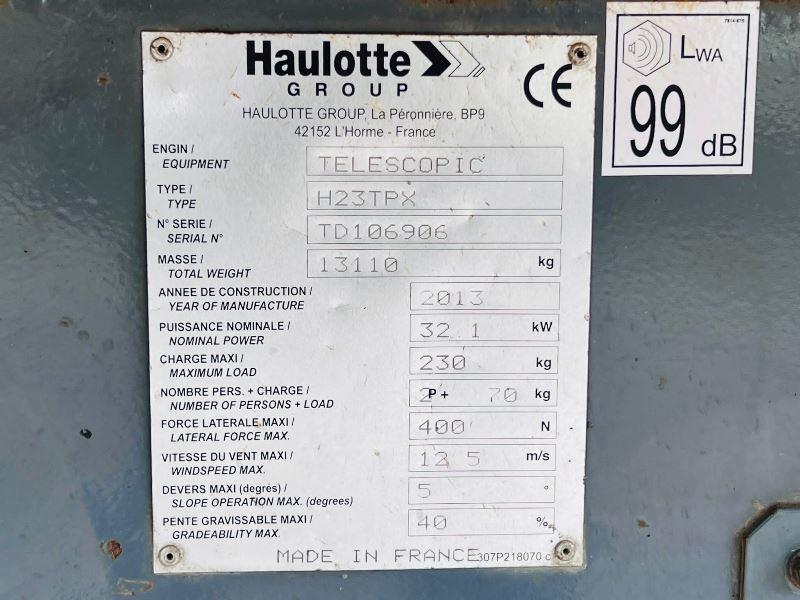 Haulotte
GROUP
CE
HAULOTTE GROUP, La Péronnière, BP9
42152 L'Horme - France
ENGIN /
EQUIPMENT
TELESCOPIC
TYPE /
TYPE
H23TPX
N° SERIE /
SERIAL N°
TD106906
MASSE /
TOTAL WEIGHT
13110 kg
ANNEE DE CONSTRUCTION /
YEAR OF MANUFACTURE
2013
PUISSANCE NOMINALE /
NOMINAL POWER
32 1 kW
CHARGE MAXI /
MAXIMUM LOAD
230 kg
NOMBRE PERS. + CHARGE /
NUMBER OF PERSONS + LOAD
2P + 70 kg
FORCE LATERALE MAXI /
LATERAL FORCE MAX.
400 N
VITESSE DU VENT MAXI /
WINDSPEED MAX.
12 5 m/s
DEVERS MAXI (degrés) /
SLOPE OPERATION MAX. (degrees)
5 °
PENTE GRAVISSABLE MAXI /
GRADEABILITY MAX.
40 %
MADE IN FRANCE 307P218070 c
LWA
99 dB